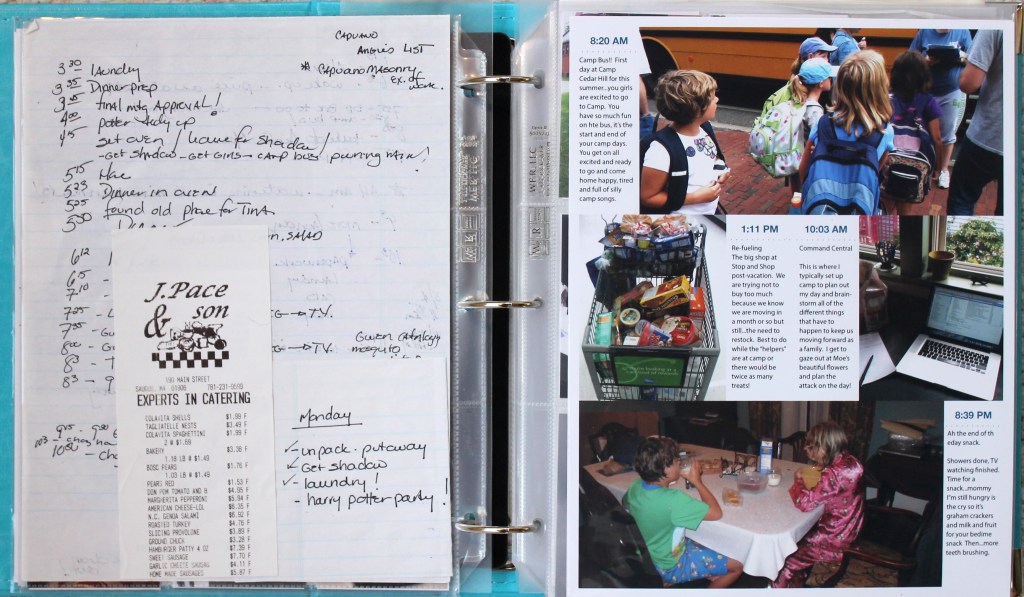 CAPUANO
ANGIE'S LIST
* CAPUANO MASONRY
EX. of
work.
3 30 laundry
3 35 Dinner prep
3 45 final mtg APPROVAL!
4 00 potter stay up
4 45 set oven / leave for shadow!
- Get shadow - Get Girls - camp bus! pouring rain!
5 15 Home
5 23 Dinner in oven
5 25 found old phone for TINA
5 30
SALAD
6 12
6 15
7 10
7 25 → T.V.
7 55
8 00 → TV.
mosquito
J. Pace
& son
190 MAIN STREET
SAUGUS, MA 01906 781-231-9599
EXPERTS IN CATERING
COLAVITA SHELLS $1.99 F
TAGLIATELLE NESTS $3.49 F
COLAVITA SPAGHETTINI $1.99 F
2 @ $1.69
BAKERY $3.38 F
1.18 LB @ $1.49
BOSC PEARS $1.76 F
1.03 LB @ $1.49
PEARS RED $1.53 F
DON POM TOMATO AND B $4.95 F
MARGHERITA PEPPERONI $5.94 F
AMERICAN CHEESE-LOL $6.35 F
N.C. GENOA SALAMI $6.92 F
ROASTED TURKEY $4.76 F
SLICING PROVOLONE $3.89 F
GROUND CHUCK $3.28 F
HAMBURGER PATTY 4 OZ $7.38 F
SWEET SAUSAGE $7.70 F
GARLIC CHEESE SAUSAG $4.11 F
HOME MADE SAUSAGES $5.87 F
Monday
✓ - unpack - putaway
✓ Get shadow
✓ - laundry!
- harry potter party!
8:20 AM
Camp Bus!! First
day at Camp
Cedar Hill for this
summer...you girls
are excited to go
to Camp. You
have so much fun
on hte bus, it's the
start and end of
your camp days.
You get on all
excited and ready
to go and come
home happy, tired
and full of silly
camp songs.
1:11 PM
Re-fueling
The big shop at
Stop and Shop
post-vacation. We
are trying not to
buy too much
because we know
we are moving in
a month or so but
still...the need to
restock. Best to do
while the "helpers"
are at camp or
there would be
twice as many
treats!
10:03 AM
Command Central
This is where I
typically set up
camp to plan out
my day and brain-
storm all of the
different things
that have to
happen to keep us
moving forward as
a family. I get to
gaze out at Moe's
beautiful flowers
and plan the
attack on the day!
8:39 PM
Ah the end of th
eday snack.
Showers done, TV
watching finished.
Time for a
snack...mommy
I'm still hungry is
the cry so it's
graham crackers
and milk and fruit
for your bedime
snack Then...more
teeth brushing.